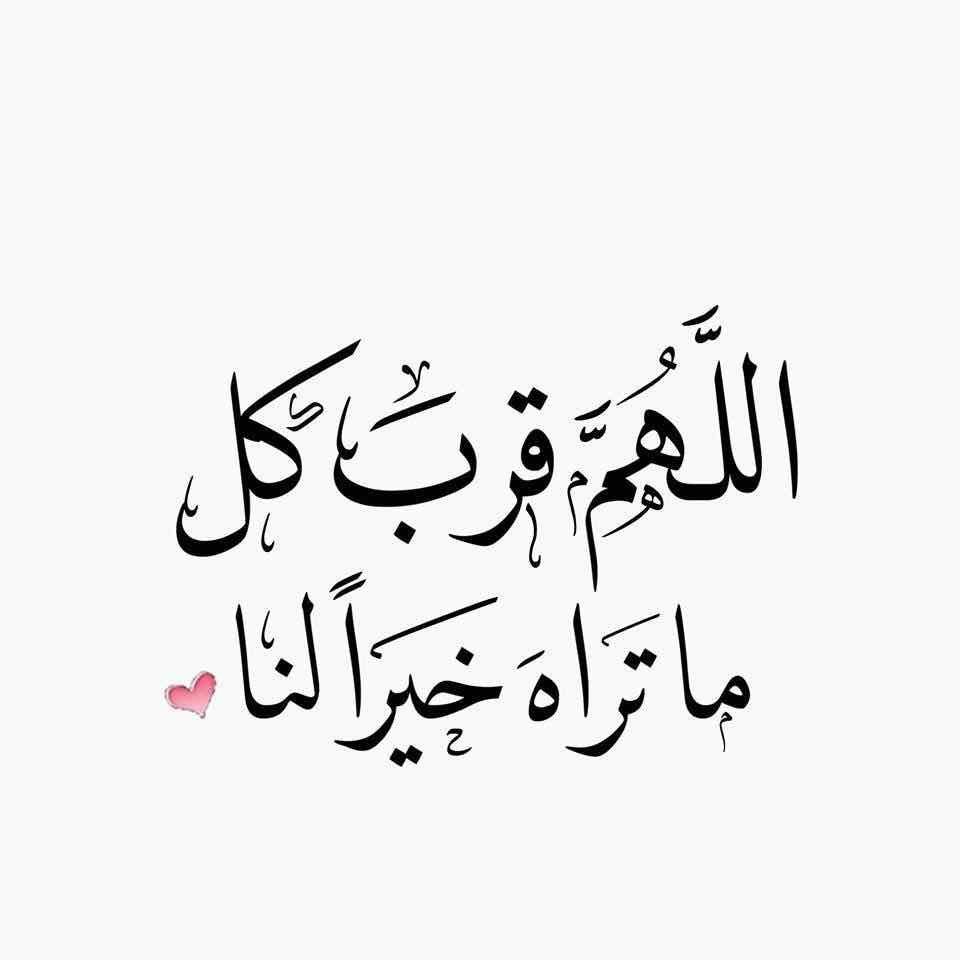 اللَّهُمَّ قربَ كل
ما ترَاهَ خيرَاً لنا